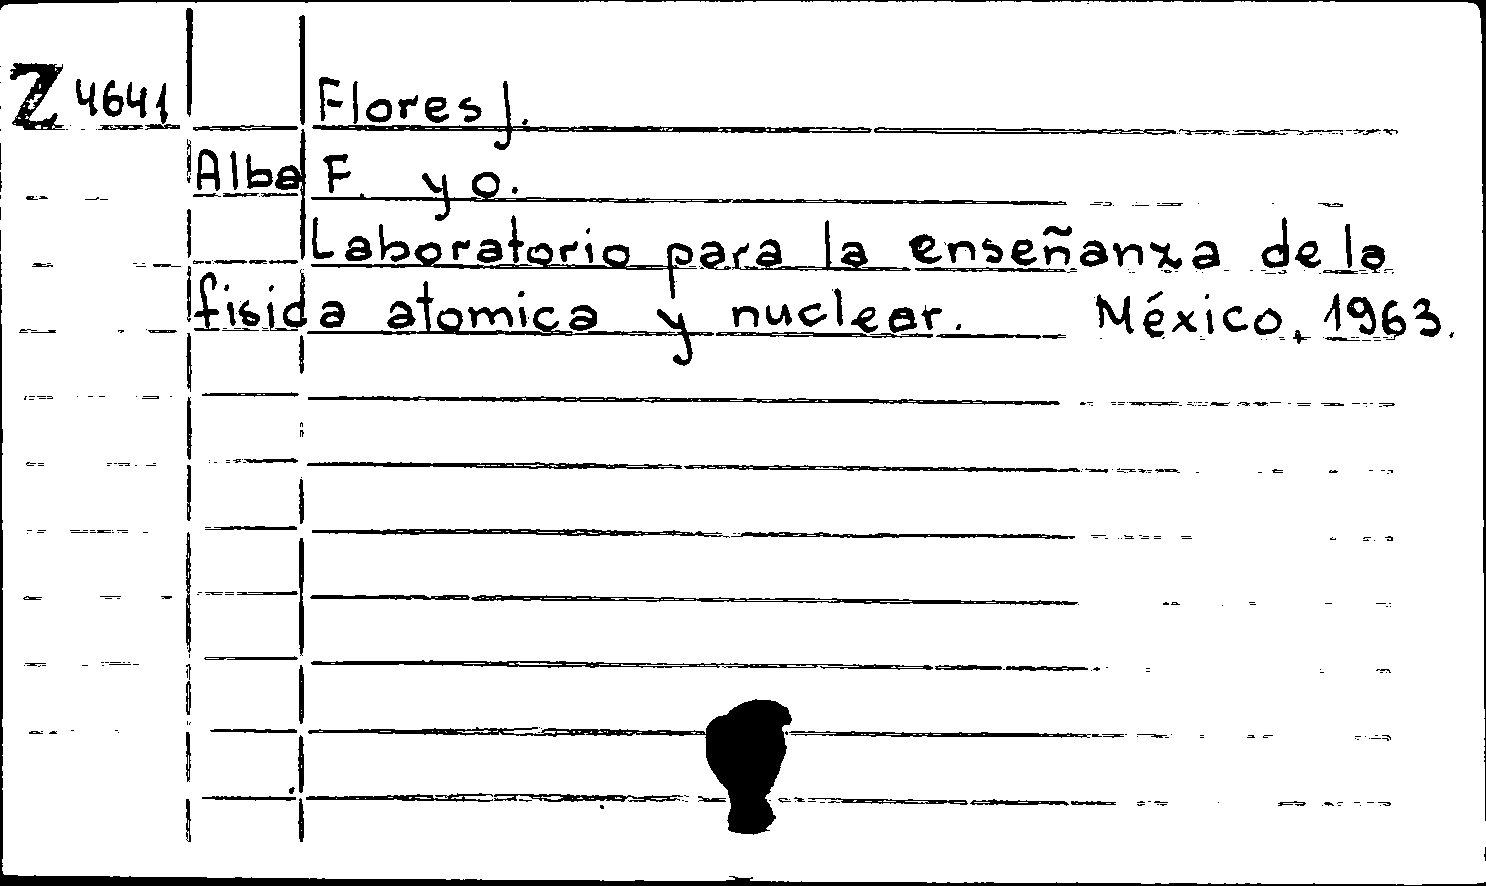 Z 4641 Flores J.
Alba F. y o.
Laboratorio para la enseñanza de la
fisida atomica y nuclear. México, 1963.